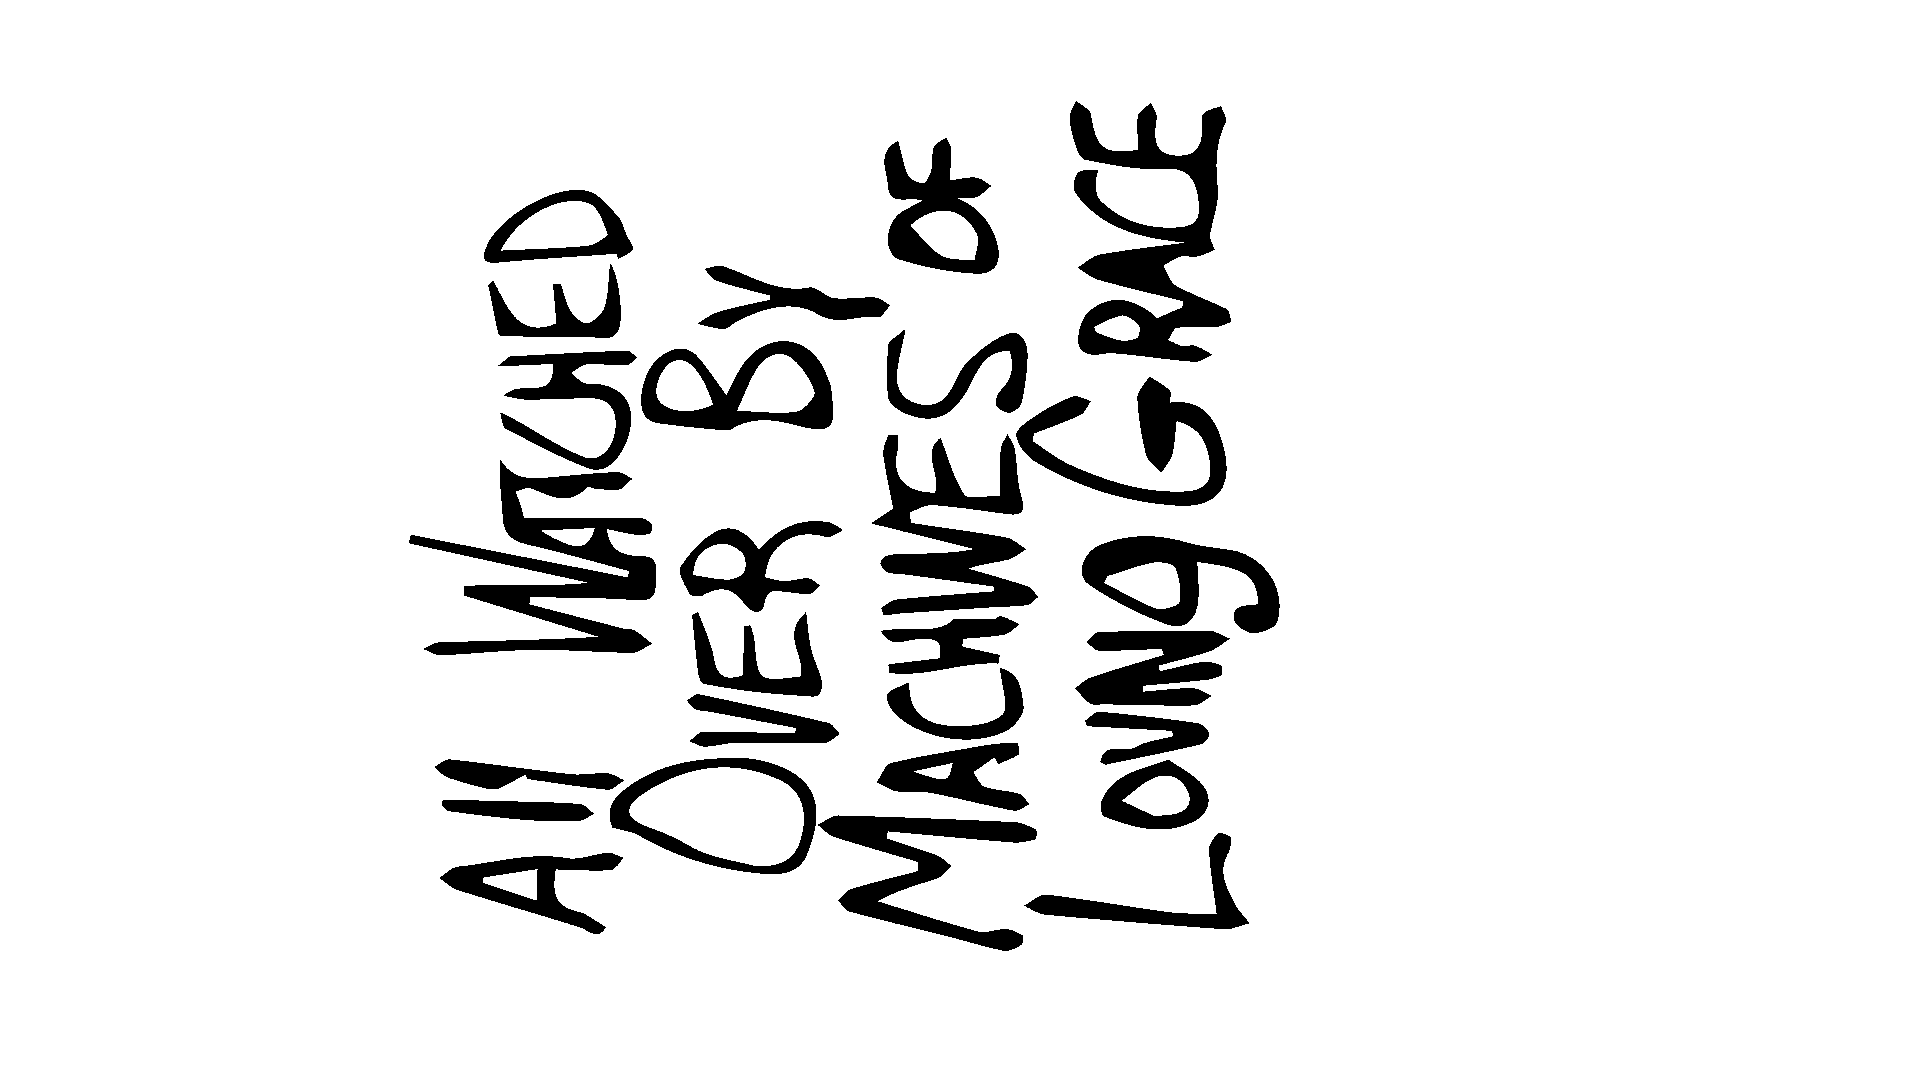 All WATCHED
OVER BY
MACHINES OF
LOVINg GRACE